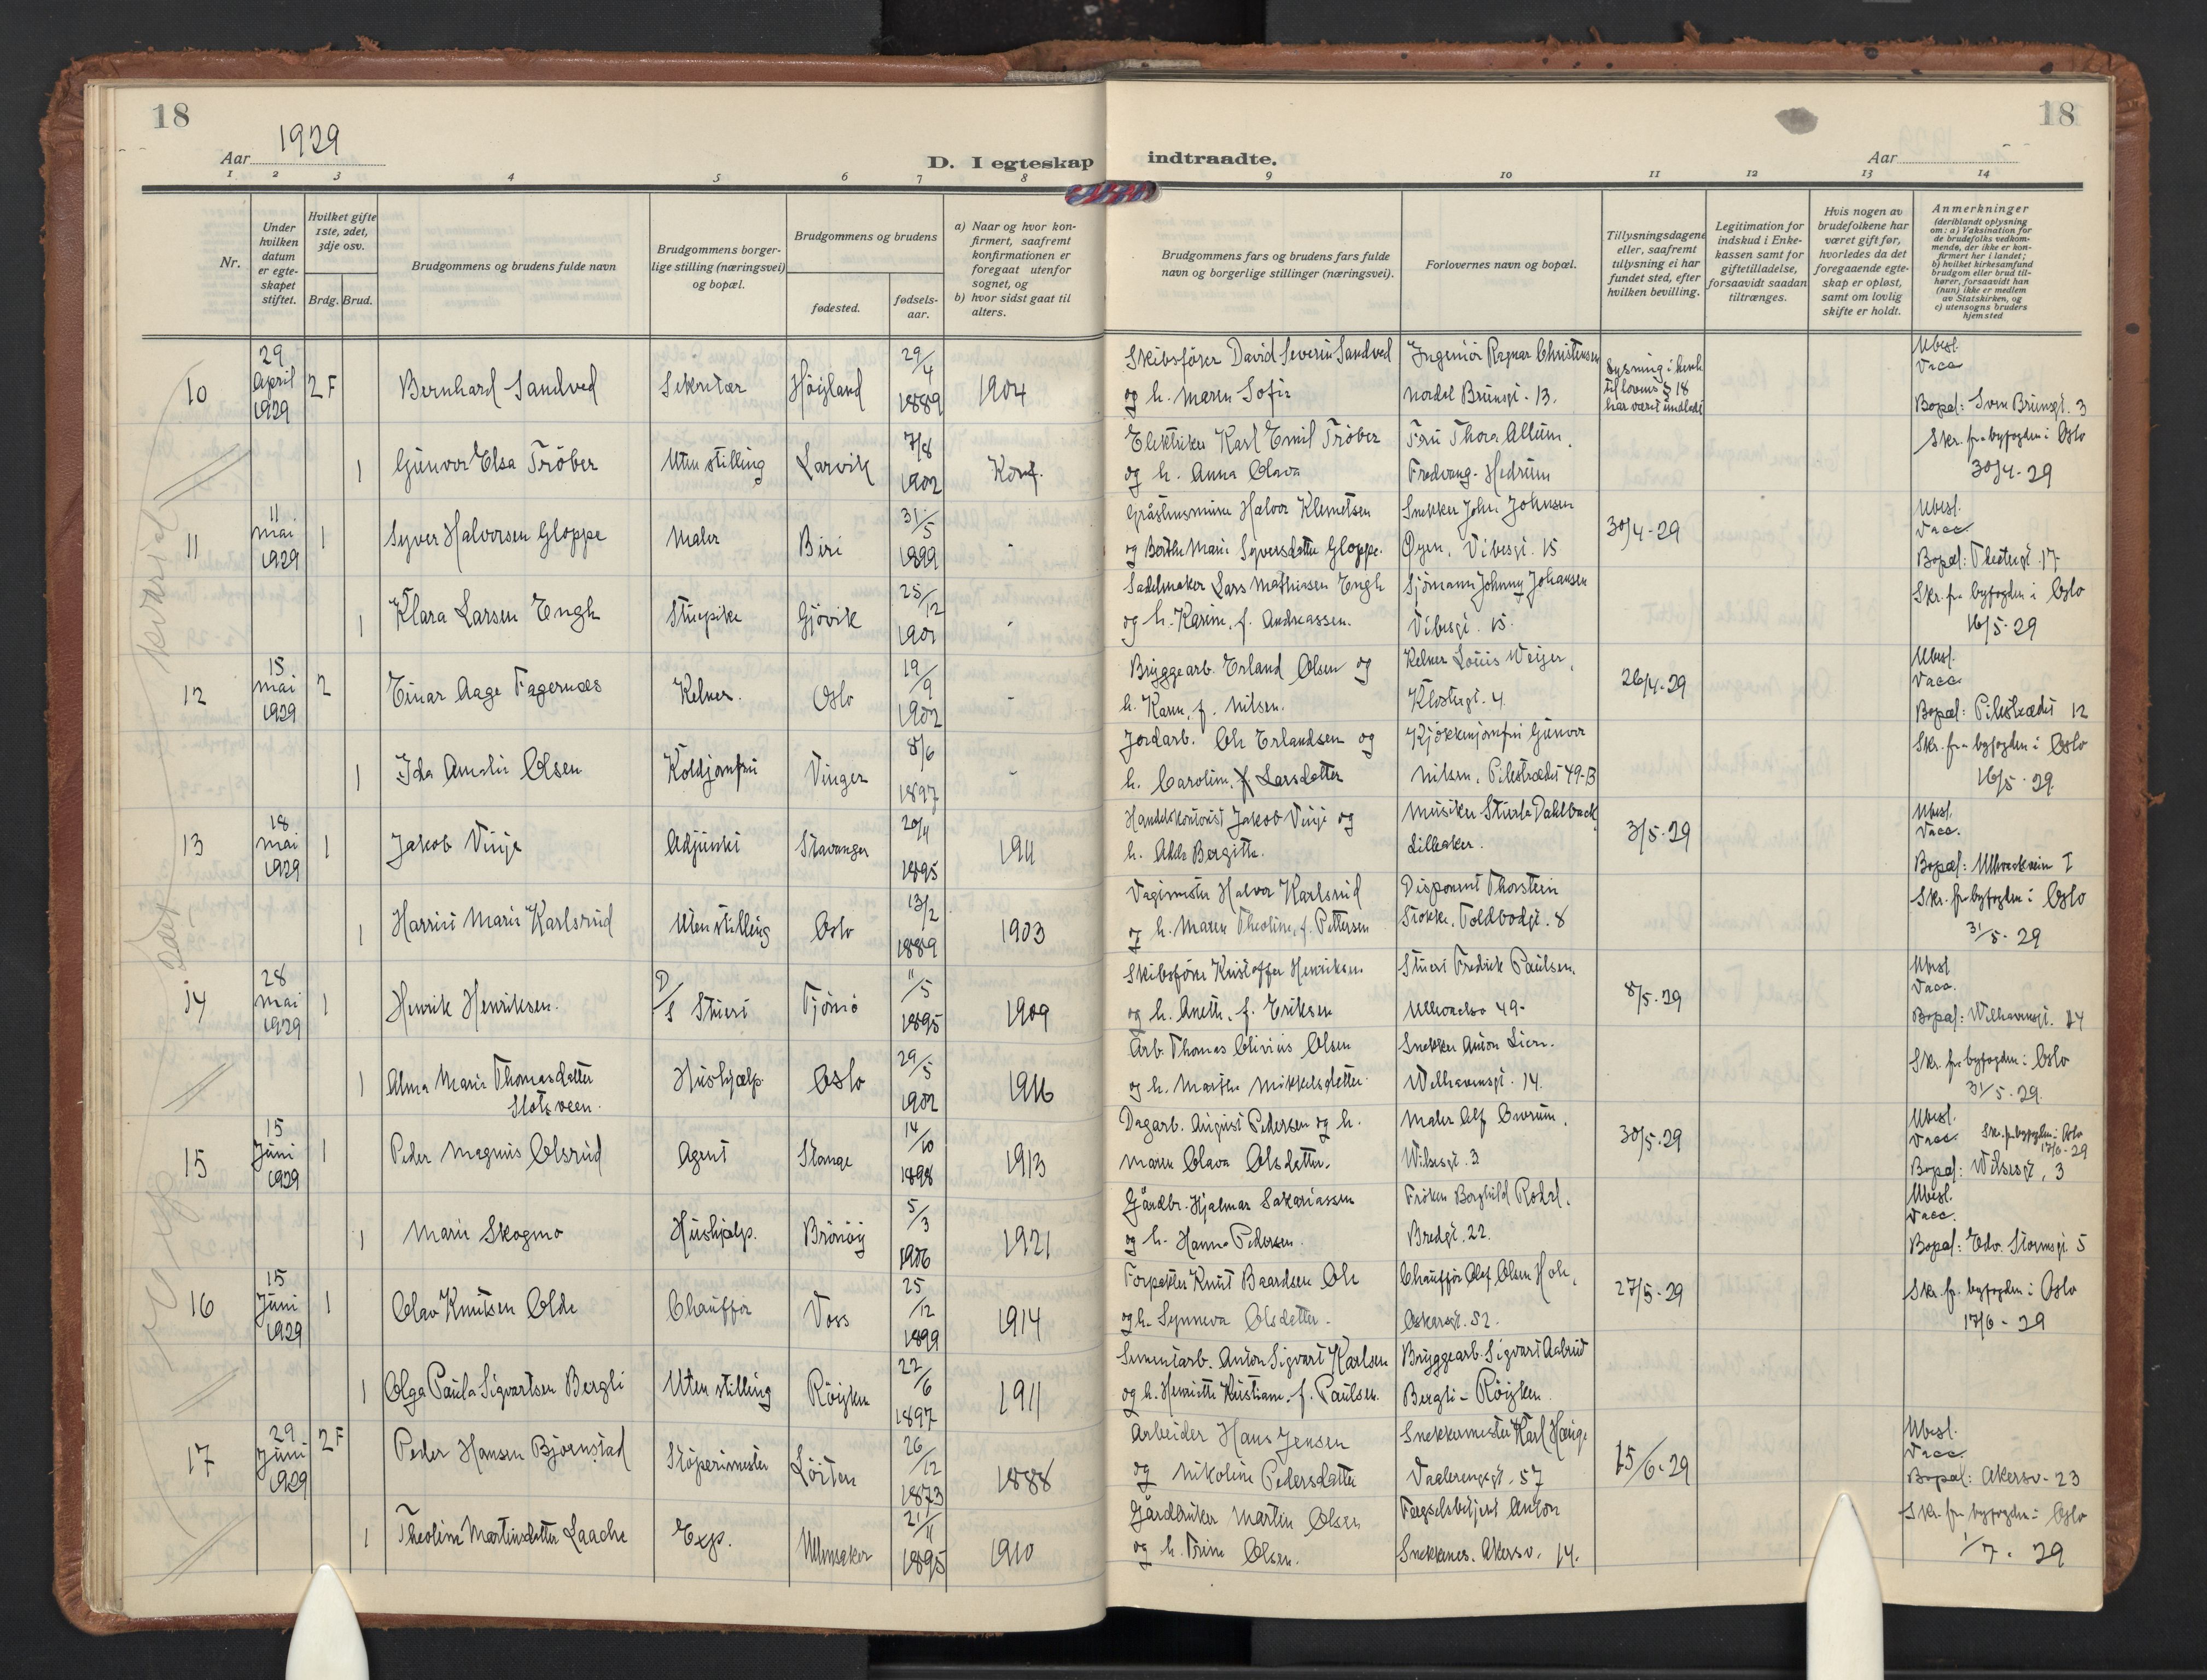 18
1929
Aar
D. I egteskap
1 2 3 4 5 6 7 8
Nr.
Under
hvilken
datum
er egte-
skapet
stiftet.
Hvilket gifte
1ste, 2det,
3dje osv.
Brdg. Brud.
Brudgommens og brudens fulde navn
Brudgommens borger-
lige stilling (næringsvei)
og bopæl.
Brudgommens og brudens
fødested.
fødsels-
aar.
a) Naar og hvor kon-
firmert, saafremt
konfirmationen er
foregaat utenfor
sognet, og
b) hvor sidst gaat til
alters.
18
indtraadte.
Aar
9 10 11 12 13 14
Brudgommens fars og brudens fars fulde
navn og borgerlige stillinger (næringsvei).
Forlovernes navn og bopæl.
Tillysningsdagene
eller, saafremt
tillysning ei har
fundet sted, efter
hvilken bevilling.
Legitimation for
indskud i Enke-
kassen samt for
giftetilladelse,
forsaavidt saadan
tiltrænges.
Hvis nogen av
brudefolkene har
været gift før,
hvorledes da det
foregaaende egte-
skap er opløst,
samt om lovlig
skifte er holdt.
Anmerkninger
(deriblandt oplysning
om: a) Vaksination for
de brudefolks vedkom-
mende, der ikke er kon-
firmert her i landet;
b) hvilket kirkesamfund
brudgom eller brud til-
hører, forsaavidt han
(hun) ikke er medlem
av Statskirken, og
c) utensogns bruders
hjemsted
10 29 April 1929 2 F Bernhard Sandved Sekretær Høiland 29/4 1889 1904
Skibsfører David Severin Sandved Ingeniør Ragnar Christensen
og h. Maren Sofie Nordal Brunsgt. 13.
Lysning i henh.
til lovens § 18
har været undladt
Ubesl.
Vacc.
Bopæl: Sven Brunsgt. 3
1 Gunvor Elsa Tröber Uten stilling Larvik 7/8 1902 Konf.
Elektriker Karl Emil Tröber Fru Thora Allum.
og h. Anna Olava Fredvang - Hedrum
Skr. fra byfogden i Oslo
30/4 - 29
11 11 Mai 1929 1 Syver Halvorsen Gloppe Maler Biri 31/5 1899 -
Halvor Klemetsen Snekker John Johnsen
og Berthe Marie Syversdatter Gloppe. Øyen, Vibesgt. 15
30/4-29
Ubesl.
Vacc.
Bopæl: Thestrupgt. 17
1 Klara Larsen Engh Stuepike Gjövik 25/12 1901 -
Sadelmaker Lars Mathiasen Engh Sjömann Johnny Johansen
og h. Karine, f. Andreassen. Vibesgt. 15.
Skr. fra byfogden i Oslo
16/5-29
12 15 Mai 1929 2 Einar Aage Fagernæs Kelner. Oslo 19/9 1902 -
Bryggearb. Erland Olsen og Kelner Louis Weiger,
h. Karen, f. Nilsen. Klostergt. 4
26/4-29
Ubesl.
Vacc.
Bopæl: Pilestrædet 12
1 Ida Amalie Olsen Koldjomfru Vinger 8/6 1897 -
Jordarb. Ole Erlandsen og Kjökkenjomfru Gunvor
h. Caroline, f. Larsdatter Nilsen, Pilestrædet 49-B
Skr. fra byfogden i Oslo
16/5-29
13 18 Mai 1929 1 Jakob Vinje Adjunkt Stavanger 20/4 1895 1911
Handelskontorist Jakob Vinje og Musiker Sturla Dahlback
h. Alda Bergitte. Lilleaker.
3/5-29
Ubesl.
Vacc.
Bopæl: Ullevoldsveien I
1 Harriet Marie Karlsrud Uten stilling Oslo 13/2 1889 1903
Halvor Karlsrud Disponent Thorstein
og h. Maren Theoline, f. Pettersen Stokke, Toldbodgt. 8
Skr. fra byfogden i Oslo
31/5-29
14 28 Mai 1929 1 Henrik Henriksen. D/S Stuert Tjömö 11/5 1895 1909
Skibsförer Kristoffer Henriksen Stuert Fredrik Paulsen.
og h. Anethe, f. Eriksen 49-
8/5-29
Ubesl.
Vacc.
Bopæl: Welhavensgt. 14
1 Alma Marie Thomasdatter
Slotsveen.
Hushjælp Oslo 29/5 1902 1916
Arb. Thomas Olivius Olsen Snekker Anton Lien.
og h. Marthe Mikkelsdatter Welhavensgt. 14.
Skr. fra byfogden i Oslo
31/5-29.
15 15 Juni 1929 1 Peder Magnus Olsrud Agent Stange 14/10 1898 1913
Dagarb. August Pedersen og h. Maler Alf Aurum.
Maren Olava Olsdatter. Wilsesgt. 3
30/5-29
Ubesl.
Vacc. Skr. fra byfogden i Oslo
17/6-29
Bopæl: Wilsesgt. 3
1 Marie Skogmo Hushjælp. Brönöy 5/3 1906 1921
Gårdbr. Hjalmar Sakariassen Fröken Borghild Rodal.
og h. Hanna Pedersen. Bredgt. 22.
Ubesl.
Vacc.
Bopæl: Edv. Stormsgt. 5
16 15 Juni 1929 1 Olav Knutsen Olde Chauffør Voss 25/12 1899 1914
Forpakter Knut Baardsen Ole Chauffør Olef Olsen Hole,
og h. Synneva Olsdatter. Oskarsgt. 52.
27/5-29
Skr. fra byfogden i Oslo
17/6-29
1 Olga Paula Sigvartsen Bergli Uten stilling Röyken 22/6 1897 1911
Sementarb. Anton Sigvart Karlsen Bryggearb. Sigvart Aabrud
og h. Henriette Kristiane, f. Paulsen. Bergli - Röyken
17 29 Juni 1929 2 F Peder Hansen Björnstad Stöperimester Löiten 26/12 1873 1888
Arbeider Hans Jensen Snekkermester Karl Hauge
og Nikoline Pedersdatter Vaalerenggt. 57
15/6-29
Ubesl.
Vacc.
Bopæl: Akersv. 23
1 Theoline Martinsdatter Laache Exp. Ullensaker 21/11 1895 1910
Gårdbruker Martin Olsen Fængselsbetjent Anton
og h. Trine Olsen. Snekkenes. Akersv. 14.
Skr. fra byfogden i Oslo
1/7-29